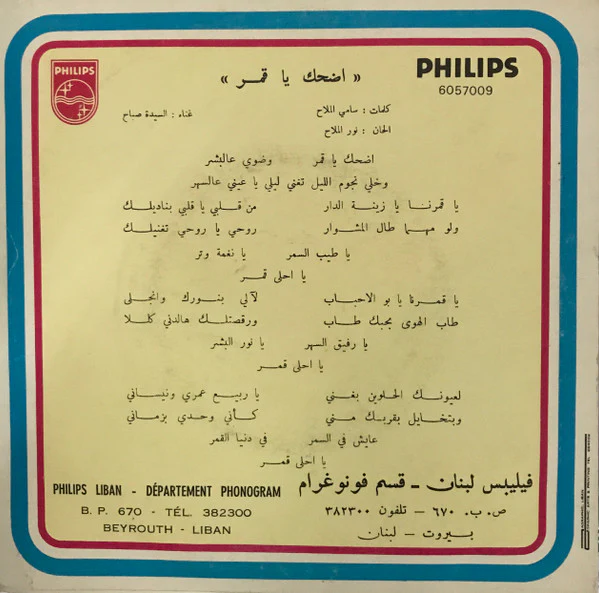 PHILIPS
« اضحك يا قمـر »
PHILIPS
6057009
كلمات : سامي الملاح
غناء : السيدة صباح
الحان : نور الملاح
اضحك يا قمر وضوي عالبشر
وخلي نجوم الليل تغني ليلي يا عيني عالسهر
يا قمرنا يا زينة الدار من قلبي يا قلبي بناديلك
ولو مهما طال المشوار روحي يا روحي تغنيلك
يا طيب السمر يا نغمة وتر
يا احلى قمر
يا قمرنا يا بو الاحباب لآلي بنورك وانجلى
طاب الهوى بحبك طاب ورقصتلك هالدني كلا
يا رفيق السهر يا نور البشر
يا احلى قمر
لعيونك الحلوين بغني يا ربيع عمري ونيساني
وبتخايل بقربك مني كأني وحدي بزماني
عايش في السمر في دنيا القمر
يا احلى قمر
فيليبس لبنان - قسم فونوغرام
PHILIPS LIBAN - DÉPARTEMENT PHONOGRAM
ص. ب. ٦٧٠ - تلفون ٣٨٢٣٠٠
B. P. 670 - TÉL. 382300
بيروت - لبنان
BEYROUTH - LIBAN